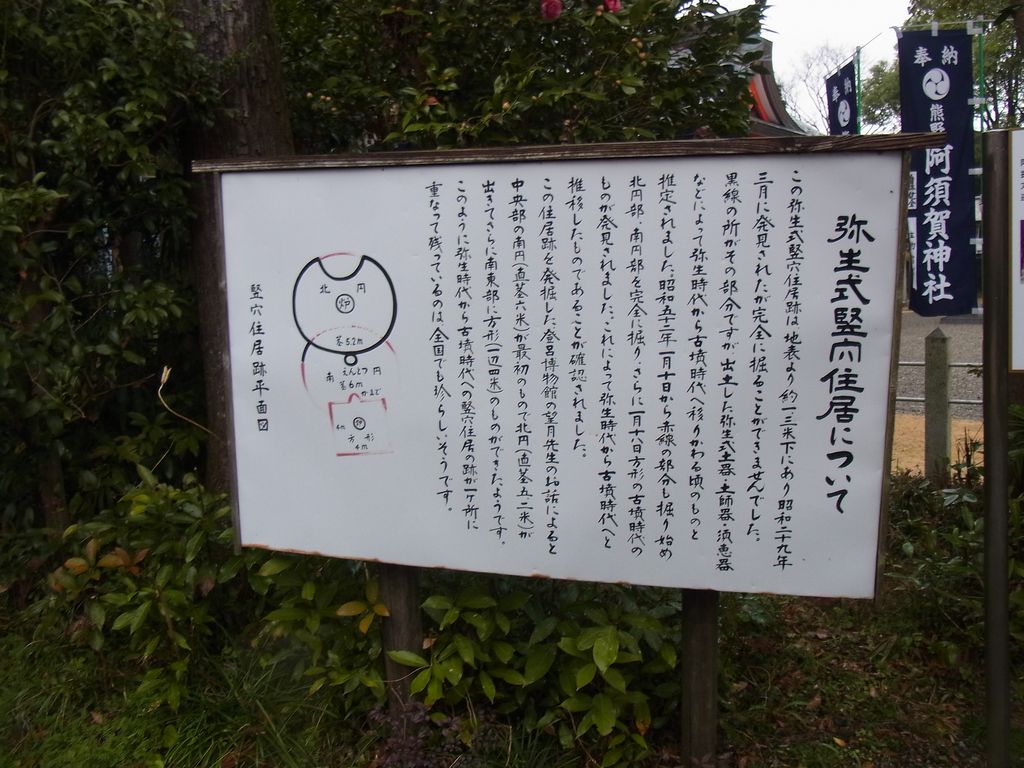 弥生式竪穴住居について
この弥生式竪穴住居跡は地表より約一三米下にあり昭和二十九年
三月に発見されたが完全に掘ることができませんでした。
黒線の所がその部分ですが出土した弥生式土器、土師器、須恵器
などによって弥生時代から古墳時代へ移りかわる頃のものと
推定されました。昭和五十二年一月十日から赤線の部分も掘り始め
北円部、南円部を完全に掘り、さらに一月十六日方形の古墳時代の
ものが発見されました。これによって弥生時代から古墳時代へと
推移したものであることが確認されました。
この住居跡を発掘した登呂博物館の望月先生のお話によると
中央部の南円(直茎六米)が最初のもので北円(直茎五、二米)が
出きてさらに南東部に方形(一辺四米)のものができたようです。
このように弥生時代から古墳時代への竪穴住居の跡が一ヶ所に
重なって残っているのは全国でも珍らしいそうです。
北 円
炉
茎5.2m
えんとつ
南 円
茎6m
かまど
炉
4m
方 形
4m
竪穴住居跡平面図
奉納
奉納
熊野
阿須賀神社